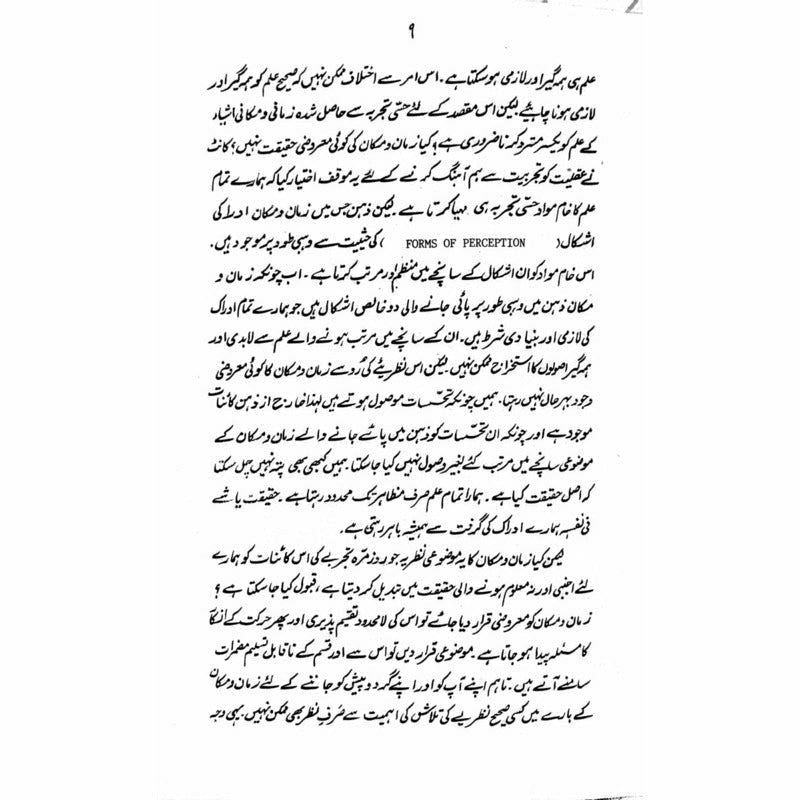 ۹
علم ہی ہمہ گیر اور لازمی ہو سکتا ہے ۔ اس امر سے اختلاف ممکن نہیں کہ صحیح علم کو ہمہ گیر اور
لازمی ہونا چاہئیے لیکن اس مقصد کے لئے حسّی تجربہ سے حاصل شدہ زمانی و مکانی اشیاء
کے علم کو یکسر مسترد کرنا ضروری ہے؟ کیا زمان و مکان کی کوئی معروضی حقیقت نہیں؟ کانٹ
نے عقلیت کو تجربیت سے ہم آہنگ کرنے کے لئے یہ موقف اختیار کیا کہ ہمارے تمام
علم کا خام مواد حسّی تجربہ ہی مہیا کرتا ہے ۔ لیکن ذہن جس میں زمان و مکان ادراک کی
اشکال ( FORMS OF PERCEPTION ) کی حیثیت سے وہبی طور پر موجود ہیں ۔
اس خام مواد کو ان اشکال کے سانچے میں منظم اور مرتب کرتا ہے ۔ اب چونکہ زمان و
مکان ذہن میں وہبی طور پر پائی جانے والی دو خالص اشکال ہیں جو ہمارے تمام ادراک
کی لازمی اور بنیادی شرط ہیں ۔ ان کے سانچے میں مرتب ہونے والے علم سے لابدی اور
ہمہ گیر اصولوں کا استخراج ممکن نہیں ۔ لیکن اس نظریئے کی رُو سے زمان و مکان کا کوئی معروضی
وجود بہرحال نہیں رہتا ۔ ہمیں چونکہ تحسّسات موصول ہوتے ہیں لہذا خارج از ذہن کائنات
موجود ہے اور چونکہ ان تحسّسات کو ذہن میں پائے جانے والے زمان و مکان کے
موضوعی سانچے میں مرتب کئے بغیر وصول نہیں کیا جا سکتا ۔ ہمیں کبھی بھی پتہ نہیں چل سکتا
کہ اصل حقیقت کیا ہے ۔ ہمارا تمام علم صرف مظاہر تک محدود رہتا ہے ۔ حقیقت یا شے
فی نفسہ ہمارے ادراک کی گرفت سے ہمیشہ باہر رہتی ہے ۔
لیکن کیا زمان و مکان کا یہ موضوعی نظریہ جو روزمرہ تجربے کی اس کائنات کو ہمارے
لئے اجنبی اور نہ معلوم ہونے والی حقیقت میں تبدیل کر دیتا ہے ، قبول کیا جا سکتا ہے ؟
زمان و مکان کو معروضی قرار دیا جائے تو اس کی لامحدود تقسیم پذیری اور پھر حرکت کے انکار
کا مسئلہ پیدا ہو جاتا ہے ۔ موضوعی قرار دیں تو اس سے اور قسم کے ناقابل تسلیم مضمرات
سامنے آتے ہیں ۔ تاہم اپنے آپ کو اور اپنے گردوپیش کو جاننے کے لئے زمان و مکان
کے بارے میں کسی صحیح نظریے کی تلاش کی اہمیت سے صَرفِ نظر بھی ممکن نہیں ۔ یہی وجہ